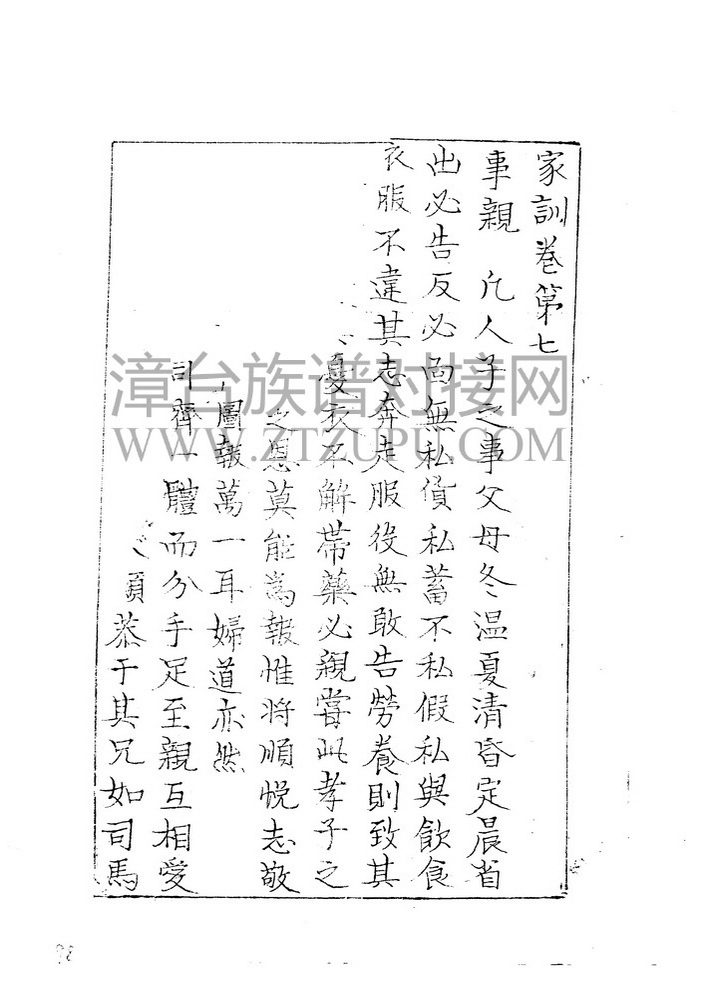 家訓卷第七
事親　凡人子之事父母冬温夏清昏定晨省
出必告反必面無私貨私蓄不私假私與飲食
衣服不違其志奔走服役無敢告勞養則致其
憂衣不解帶藥必親嘗此孝子之
之恩莫能為報惟將順悅志敬
圖報萬一耳婦道亦然
齊一體而分手足至親互相愛
恭于其兄如司馬
漳台族谱对接网
WWW.ZTZUPU.COM